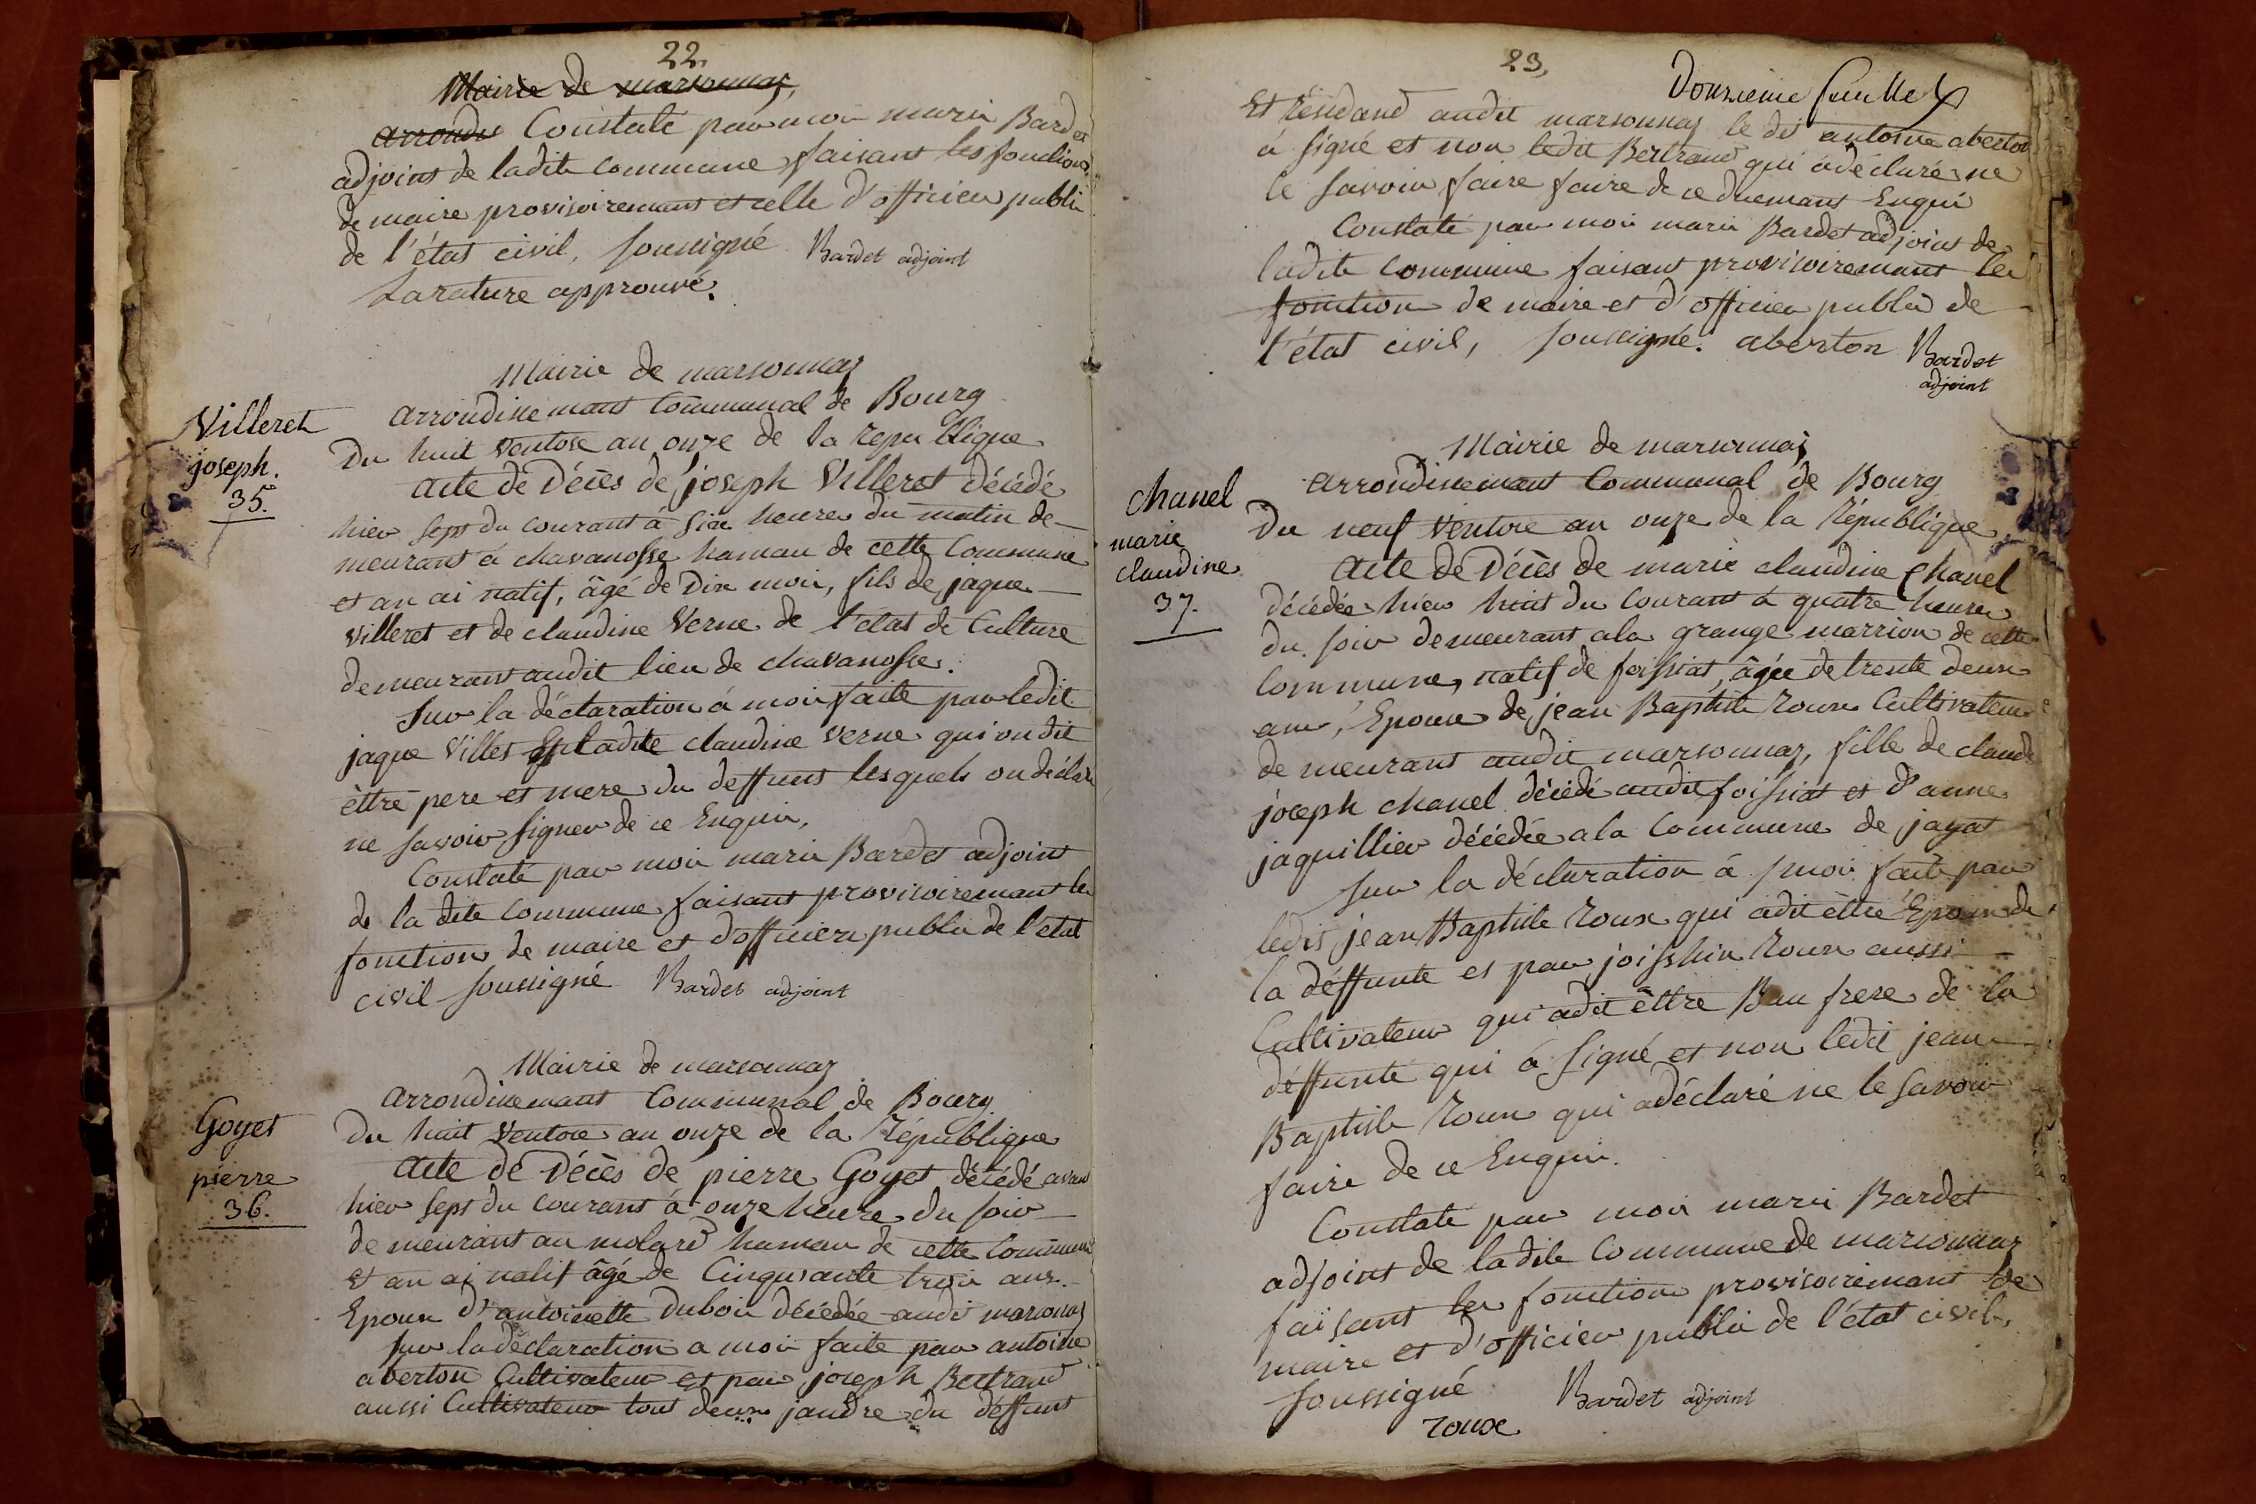 22.
Mairie de marsonnas,
arrondis Constaté par moi marin Bardet
adjoint de ladite commune faisant les fonctions
de maire provisoiremant et celle d'officier public
de l'état civil, soussigné Bardet adjoint
La rature approuvé.
Mairie de marsonnas
arrondissemant Communal de Bourg
Villeret
joseph.
35.
Du huit Ventose an onze de la republique
acte de Décès de joseph Villeret décédé
hier sept du courant à six heure du matin de-
meurant à chavanosse hamau de cette Commune
et an ai natif, âgé de Dix mois, fils de jaque
Villeret et de claudine Verne de l'état de Culture
demeurant audit lieu de chavanosse.
Sur la déclaration à moi faite par ledit
jaque Villet et ladite claudine Verne qui on dit
être pere et mere du deffunt lesquels on déclaré
ne savoir signer de ce Enquis,
Constaté par moi marin Bardet adjoint
de la dite Commune faisant provisoiremant les
fonction de maire et d'officier public de l'état
civil soussigné Bardet adjoint
Mairie de marsonnas
arrondissemant Communal de Bourg
Goyet
pierre
36.
Du huit Ventose an onze de la République
acte de Décès de pierre Goyet décédé avant
hier sept du courant à onze heure du soir
demeurant au molard hamau de cette Commune
et an ai natif âgé de Cinqusante trois ans.
Epoux d'antoinette dubois décédée audi marsonas
Sur la déclaration a moi faite par antoine
aberton Cultivateur et par joseph Bertrand
aussi Cultivateur tous deux jandre du deffunt
23,
Douzieme feuillet
Et résidand audit marsonnas le dit antoine aberton
à signé et non ledit Bertrand qui à déclaré ne
le savoir faire faire de ce duemant Enquis
Constaté par moi marin Bardet adjoint de
ladite Commune faisant provisoiremant les
fonction de maire et d'officier public de
l'état civil, soussigné. aberton Bardet
adjoint
Mairie de marsonnas
arrondissemant Communal de Bourg
chanel
marie
claudine
37.
Du neuf Ventose an onze de la République
Acte de Décès de marie claudine Chanel
décédée hier huit du Courant à quatre heure
du soir demeurant ala grange marrion de cette
Commune, natif de foissiat, âgée de trente deux
ans, Epouse de jean Baptiste Roux Cultivateur
demeurant audit marsonnas, fille de claude
joseph chanel décédé audit foissiat et d'anne
jaquillier décédée ala Commune de jayat
Sur la déclaration à moi faite par
ledit jean Baptiste Roux qui à dit être Epoux de
la déffunte et par Roux aussi
Cultivateur qui à dit être Bau frere de la
déffunte qui à signé et non ledit jean
Baptiste Roux qui à déclaré ne le savoir
faire de ce Enquis.
Constaté par moi marin Bardet
adjoint de ladite Commune de marsonnas
faisant les fonction provisoiremant de
maire et d'officier public de l'état civil,
soussigné Bardet adjoint
roux